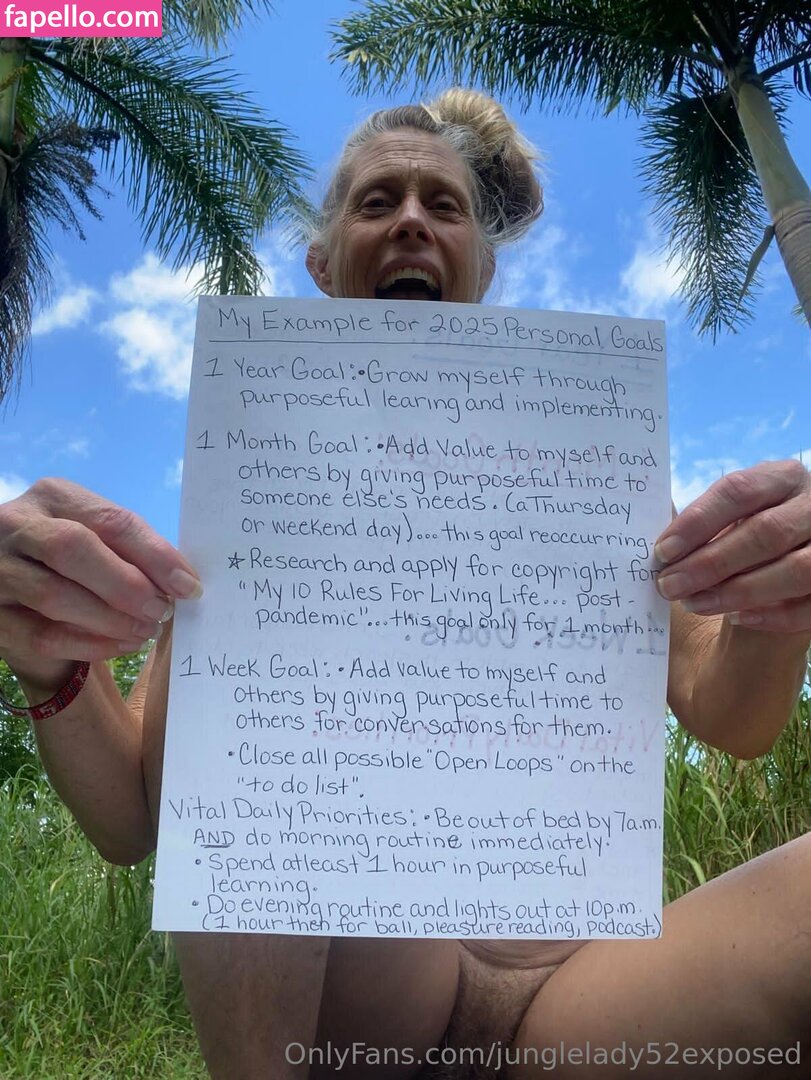 fapello.com
My Example for 2025 Personal Goals
1 Year Goal: • Grow myself through
purposeful learing and implementing.
1 Month Goal: • Add value to myself and
others by giving purposeful time to
someone else's needs. (a Thursday
or weekend day)... this goal reoccurring.
☆ Research and apply for copyright for
"My 10 Rules For Living Life... post-
pandemic"... this goal only for 1 month...
1 Week Goal: • Add value to myself and
others by giving purposeful time to
others for conversations for them.
• Close all possible "Open Loops" on the
"to do list".
Vital Daily Priorities: • Be out of bed by 7a.m.
AND do morning routine immediately.
• Spend atleast 1 hour in purposeful
learning.
• Do evening routine and lights out at 10p.m.
(1 hour then for ball, pleasure reading, podcast.)
OnlyFans.com/junglelady52exposed